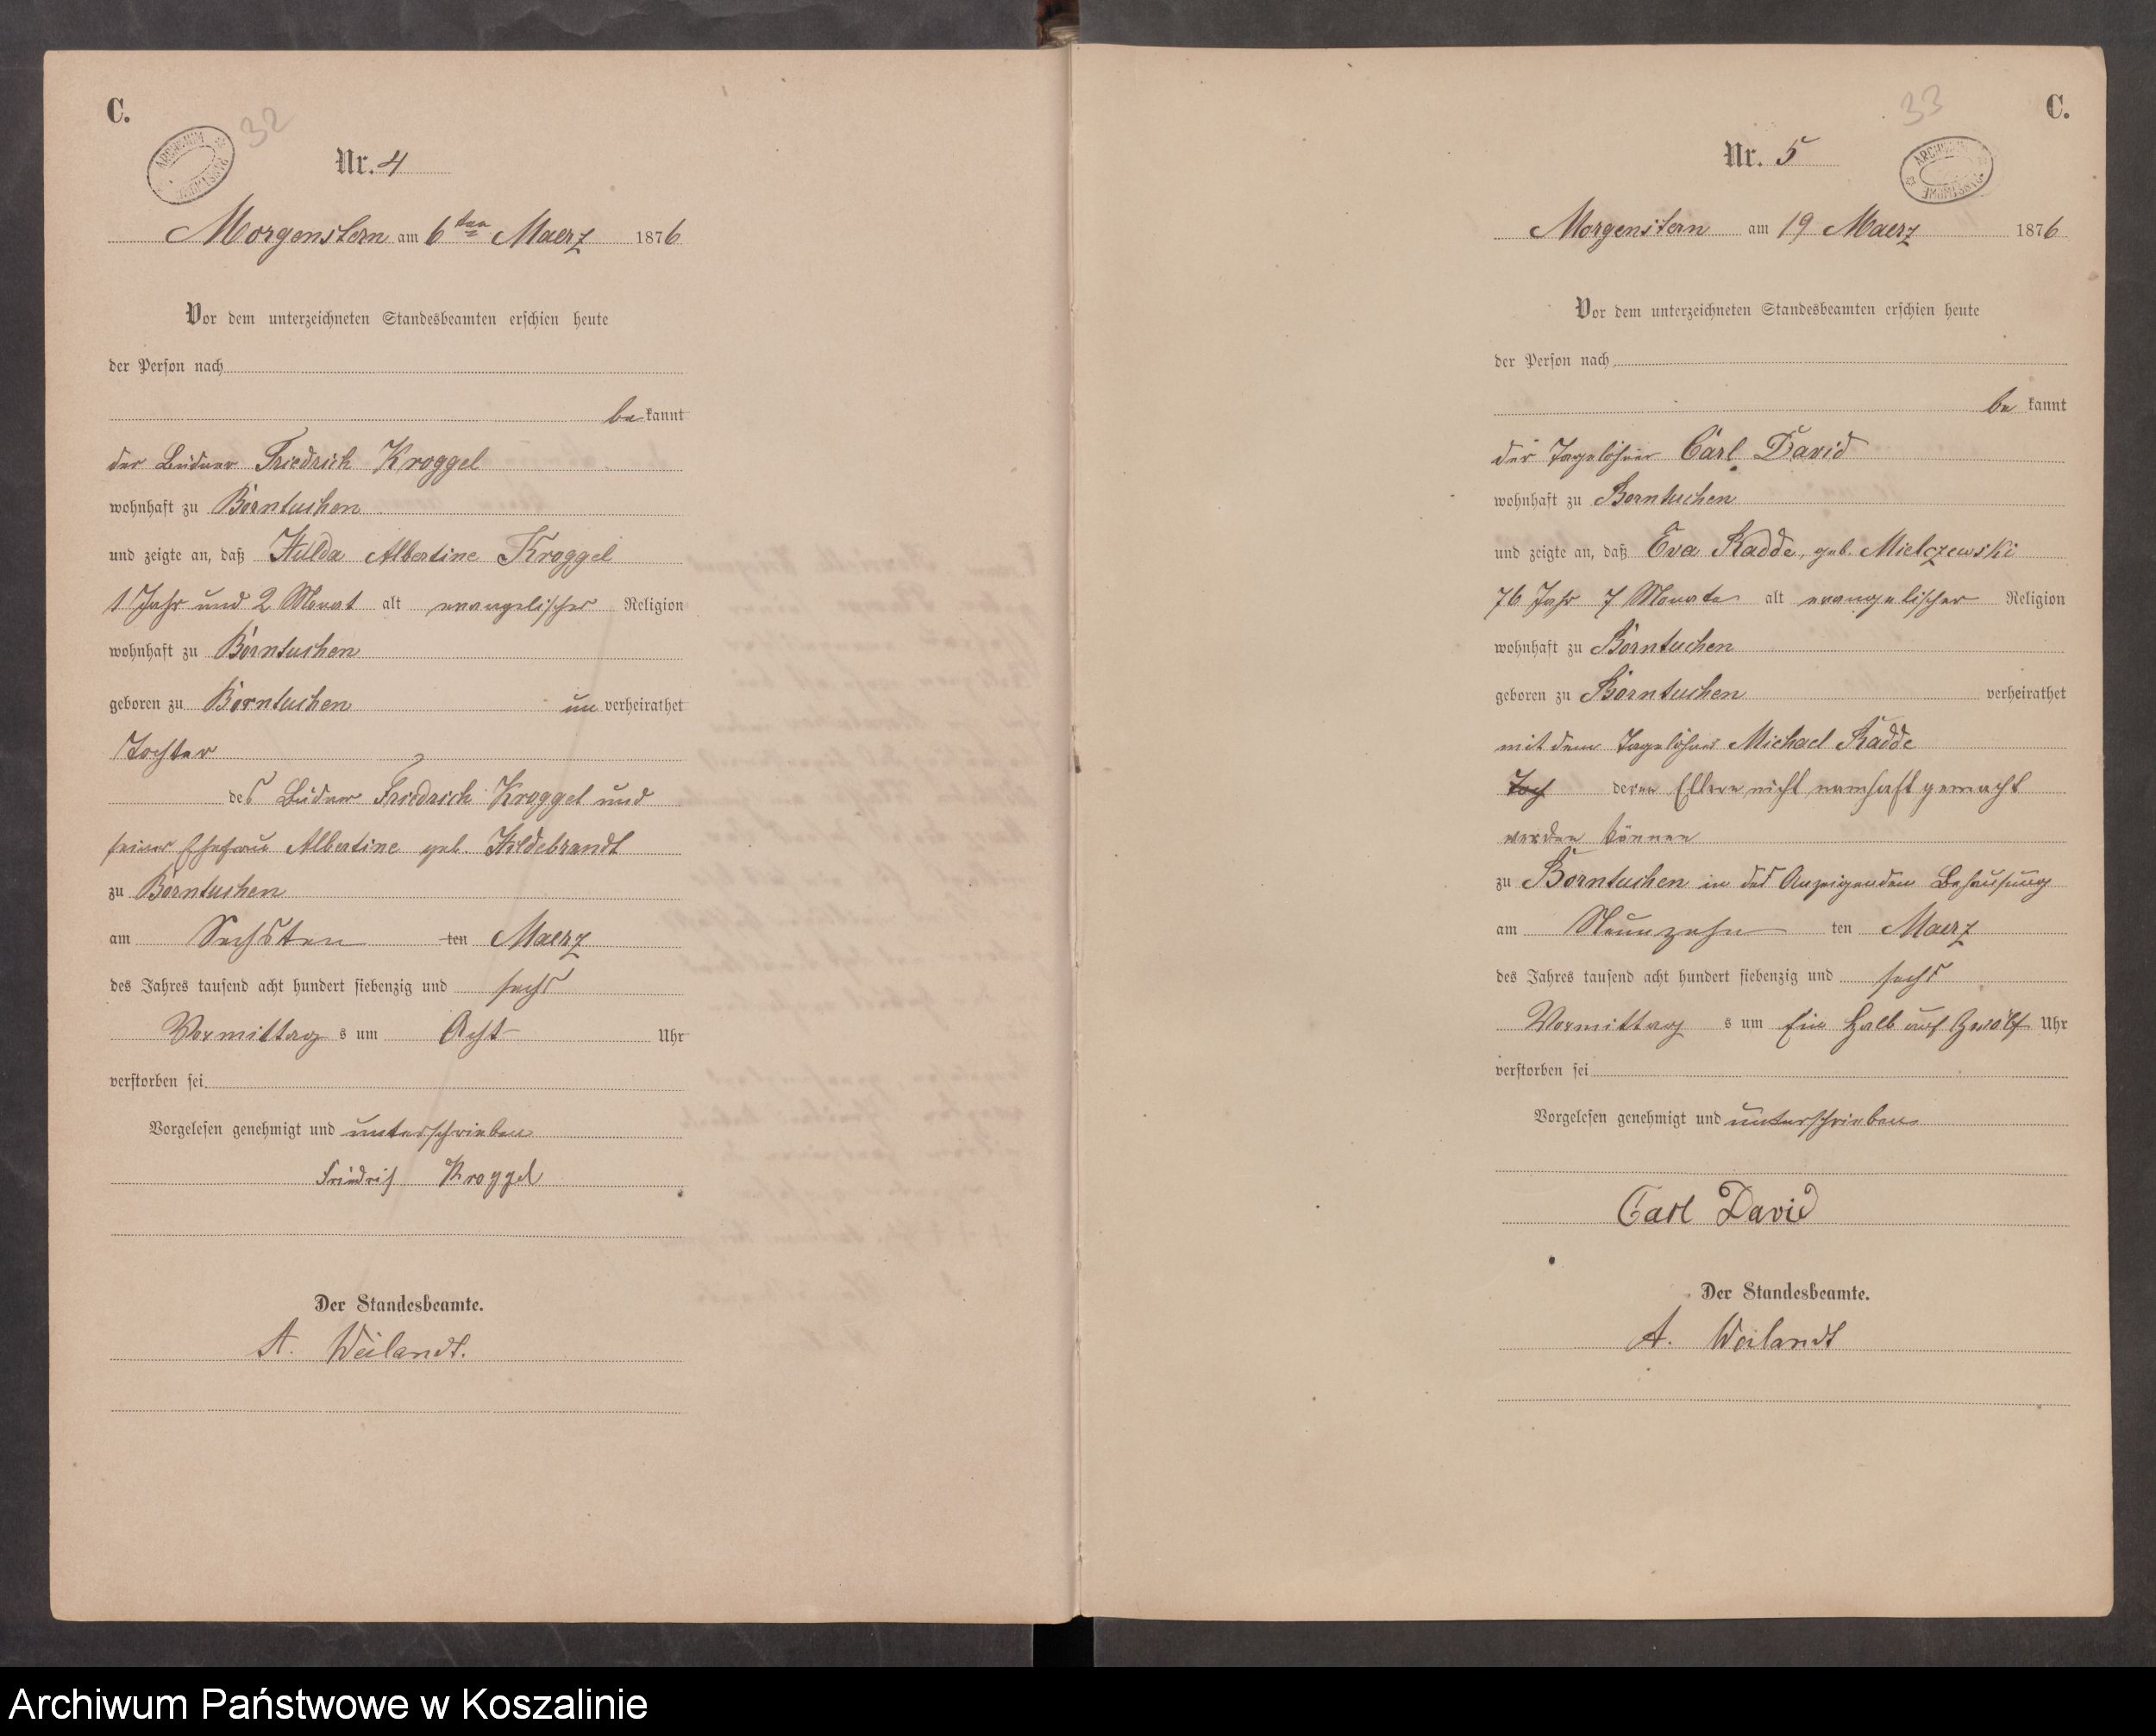 C.
32
Nr. 4
Morgenstern am 6ten Maerz 1876
Vor dem unterzeichneten Standesbeamten erschien heute
der Person nach
be kannt
der Büdner Friedrich Kroggel
wohnhaft zu Borntuchen
und zeigte an, daß Hulda Albertine Kroggel
1 Jahr und 2 Monat alt evangelischer Religion
wohnhaft zu Borntuchen
geboren zu Borntuchen un verheirathet
Tochter
des Büdner Friedrich Kroggel und
seiner Ehefrau Albertine geb. Hildebrandt
zu Borntuchen
am Sechsten ten Maerz
des Jahres tausend acht hundert siebenzig und sechs
Vormittag s um Acht Uhr
verstorben sei
Vorgelesen genehmigt und unterschrieben
Friedrich Kroggel
Der Standesbeamte.
A. Weilandt.
33
C.
Nr. 5
Morgenstern am 19 Maerz 1876
Vor dem unterzeichneten Standesbeamten erschien heute
der Person nach
be kannt
der Tagelöhner Carl David
wohnhaft zu Borntuchen
und zeigte an, daß Eva Radde, geb. Mielczewski
76 Jahr 7 Monate alt evangelischer Religion
wohnhaft zu Borntuchen
geboren zu Borntuchen verheirathet
mit dem Tagelöhner Michael Radde
Toch deren Eltern nicht namhaft gemacht
werden können
zu Borntuchen in des Anzeigenden Behausung
am Neunzehn ten Maerz
des Jahres tausend acht hundert siebenzig und sechs
Vormittag s um Ein halb auf Zwölf Uhr
verstorben sei
Vorgelesen genehmigt und unterschrieben
Carl David
Der Standesbeamte.
A. Weilandt
Archiwum Państwowe w Koszalinie